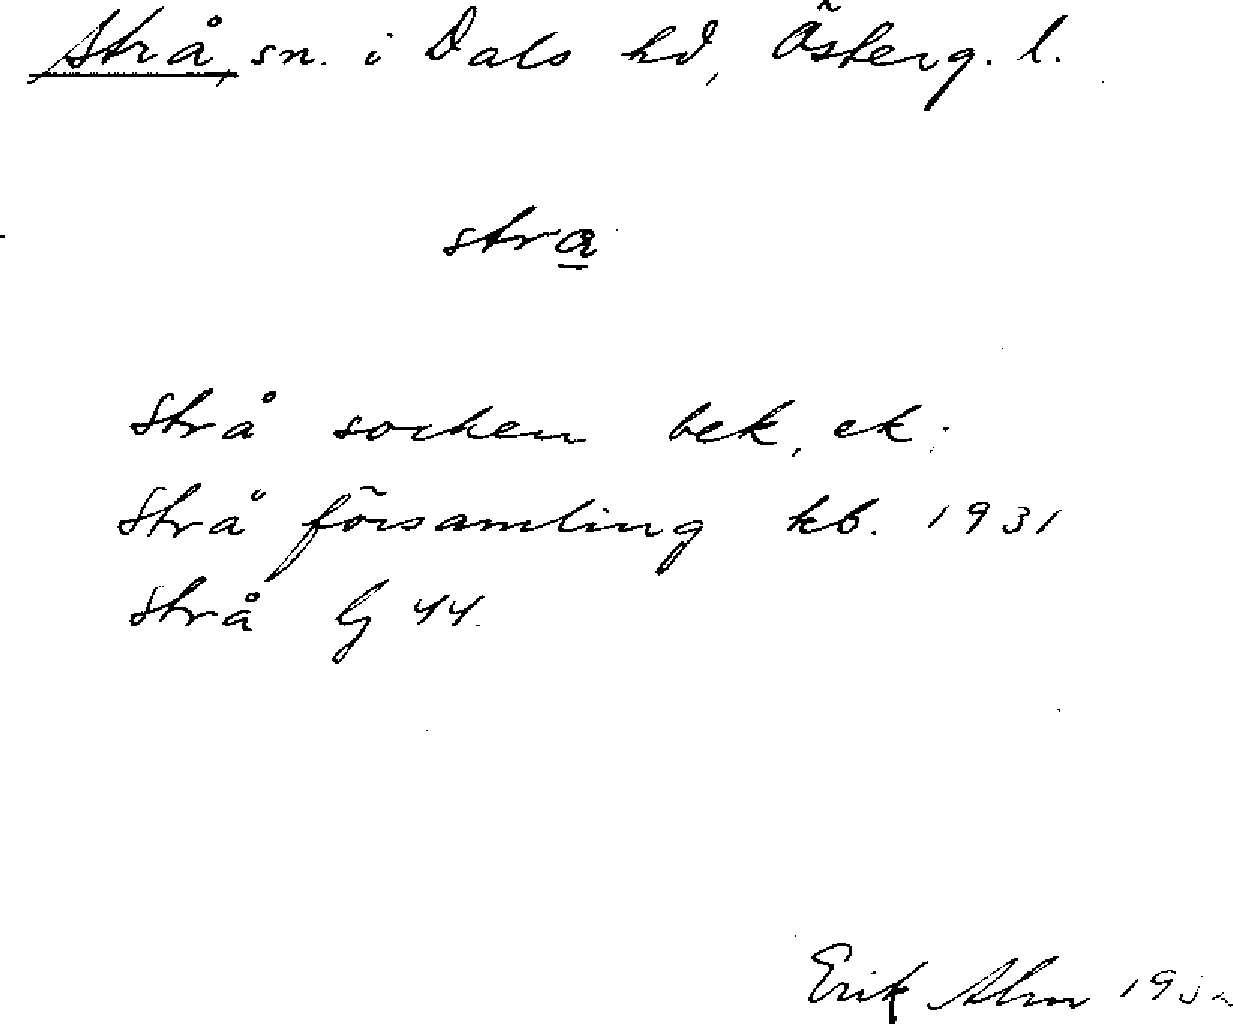 Strå, sn. i Dals hd, Österg. l.
stra
Strå socken bek, ek.
Strå församling kb. 1931
Strå G 44.
Erik Alm